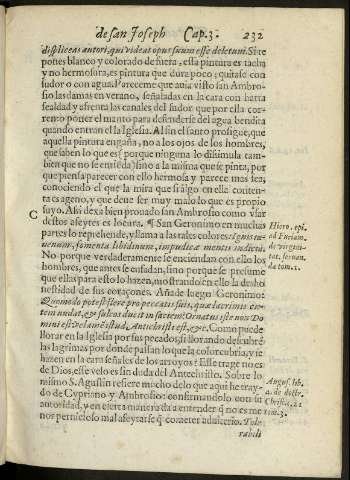 de san Joseph Cap. 3. 232
displiceas autori, qui videat opus suum esse deletum. Si te
pones blanco y colorado de fuera, esta pintura es tacha
y no hermosura, es pintura que dura poco; quitase con
sudor o con agua. Pareceme que auia visto san Ambro-
sio las damas en verano, señaladas en la cara con harta
fealdad y afrenta las canales del sudor que por ella cor-
rento poner el manto para defenderse del agua bendita
quando entran en la Iglesia. Al fin el santo prosigue, que
aquella pintura engaña, no a los ojos de los hombres,
que saben lo que es (porque ninguna lo disimula tam-
bien que no se entienda) sino a la misma que se pinta, por
que piensa parecer con ello hermosa y parece mas fea,
conociendo el que la mira que si algo en ella conten-
ta es ageno, y que deue ser muy malo lo que es propio
C suyo. Asi dexa bien prouado san Ambrosio como vsar
destos afeytes es locura. ¶ San Geronimo en muchas
partes lo reprehende, y llama a las tales colores: Ignis iu-
uenum, fomenta libidinum, impudicæ mentis indicia.
Hiero. epi.
ad Furiam.
de virgini-
tat. seruan.
da tom. 1.
No porque verdaderamente se enciendan con ello los
hombres, que antes se enfadan, sino porque se presume
que ellas para esto lo hazen, mostrando en ello la desho
nestidad de sus coraçones. Añade luego Geronimo:
Quomodo potest flere pro peccatis suis, quæ lacrimis cu-
tem nudat, & sulcos ducit in faciem? Ornatus iste non Do
mini est, velamē istud, Antichristi est, &c. Como puede
llorar en la Iglesia por sus pecados, si llorando descubrē
las lagrimas por donde passan lo que la color cubria, y se
hazen en la cara señales de los arroyos? Esse trage no es
de Dios, esse velo es sin duda del Antechristo. Sobre lo
mismo S. Agustin refiere mucho delo que aqui he tray-
do de Cypriano y Ambrosio: confirmandolo con su
autoridad, y en cierta manera da a entender q̃ no es me
nos pernicioso mal afeytarse q̃ cometer adulterio. Tole
Augus. lib.
4. de doctr.
Christia. 21
tom. 3.
rabili